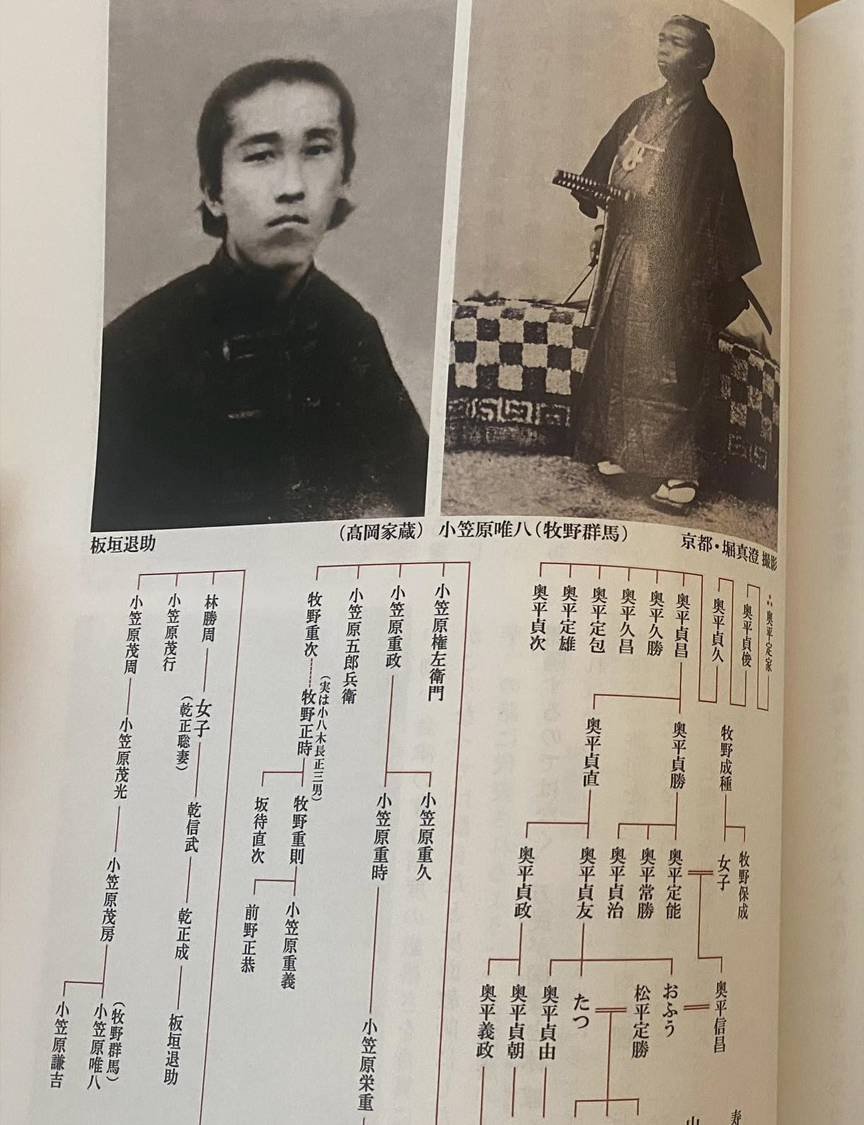 板垣退助
（高岡家蔵）
小笠原唯八（牧野群馬）
京都・堀真澄 撮影
∴奥平定家
奥平貞俊
奥平貞久
奥平貞昌
奥平久勝
奥平久昌
奥平定包
奥平定雄
奥平貞次
牧野成種
奥平貞勝
奥平貞直
牧野保成
女子
奥平定能
奥平常勝
奥平貞治
奥平貞友
奥平貞政
奥平信昌
おふう
松平定勝
たつ
奥平貞由
奥平貞朝
奥平義政
寿
小笠原権左衛門
小笠原重政
小笠原五郎兵衛
牧野重次
（実は小八木長正三男）
牧野正時
小笠原重久
小笠原重時
牧野重則
坂待直次
小笠原重義
前野正恭
小笠原栄重
林勝周
小笠原茂行
小笠原茂周
女子
（乾正聡妻）
小笠原茂光
乾信武
小笠原茂房
乾正成
板垣退助
（牧野群馬）
小笠原唯八
小笠原謙吉